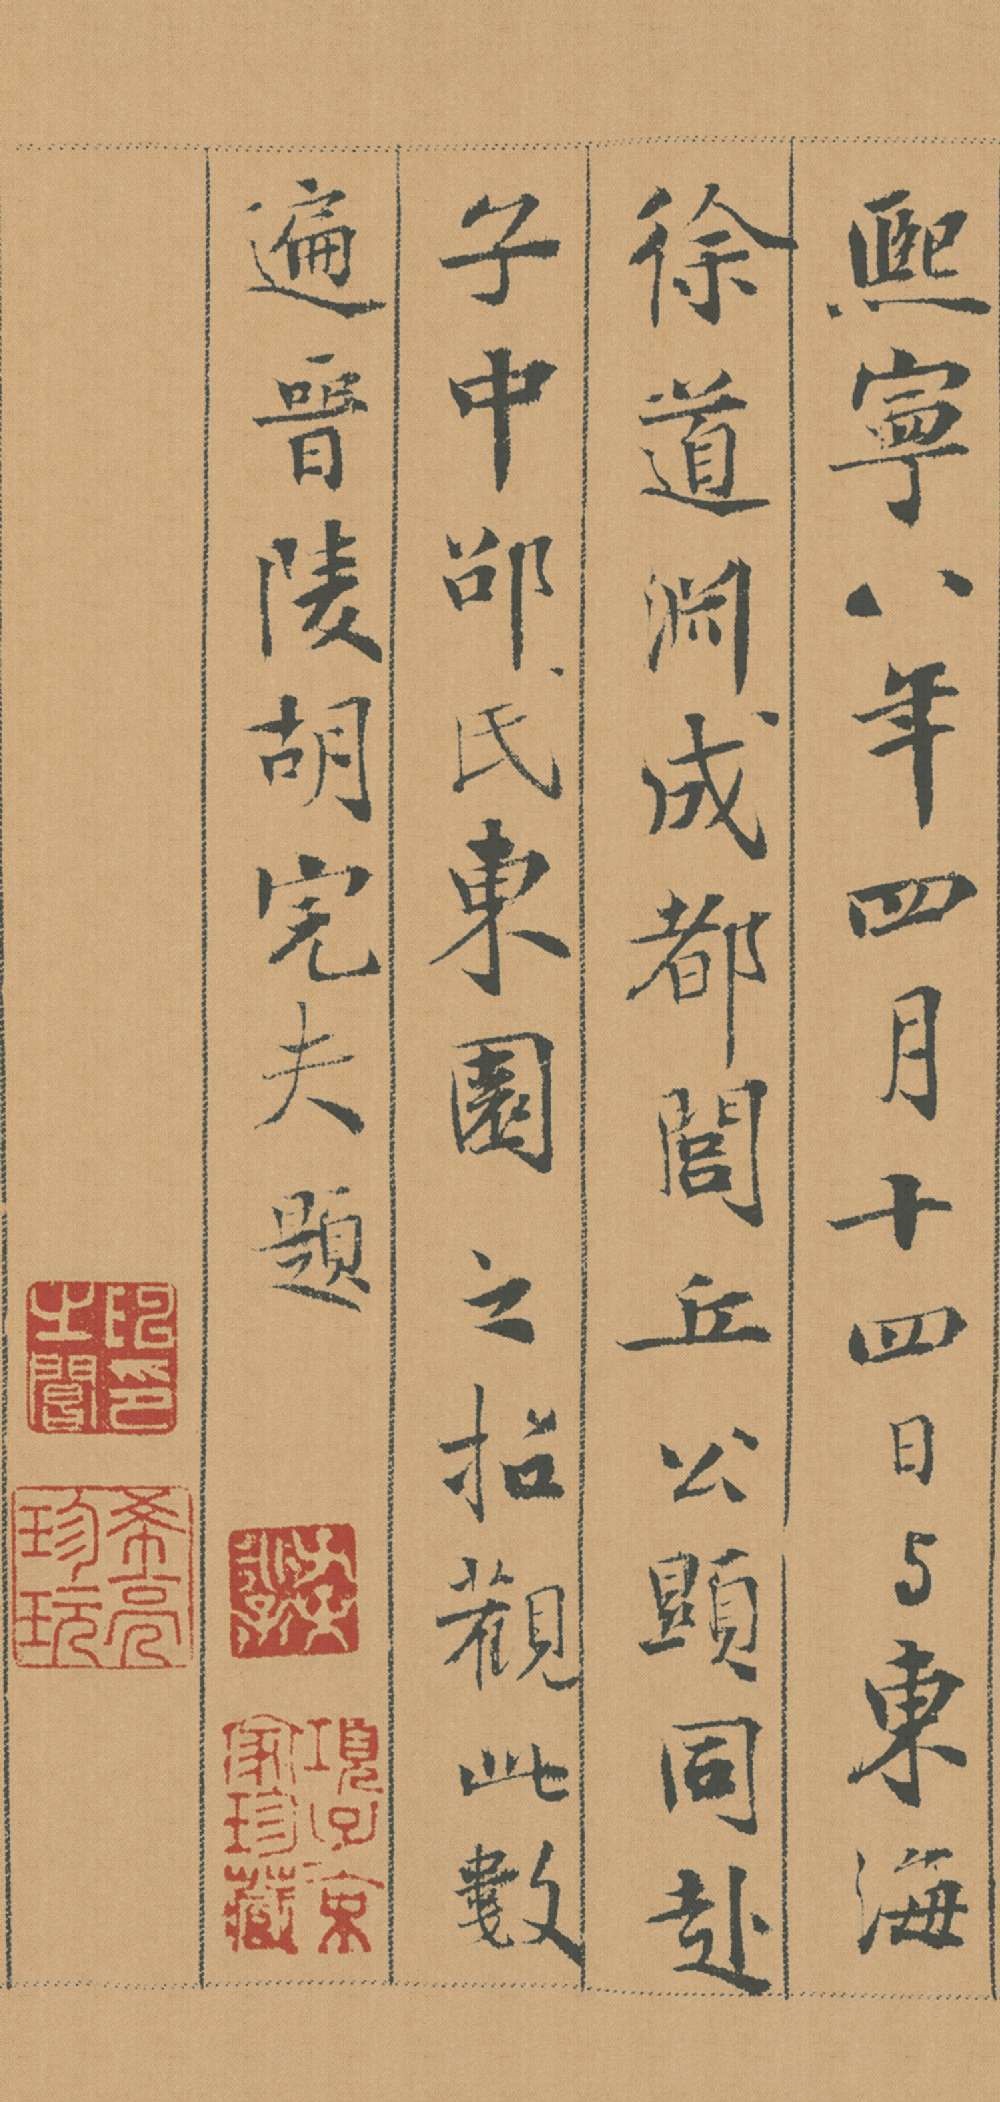 熙寧八年四月十四日与東海
徐道渊成都閭丘公顯同赴
子中邵氏東園之招觀此數
遍晉陵胡完夫題
項子京家珍藏
希亮珍玩